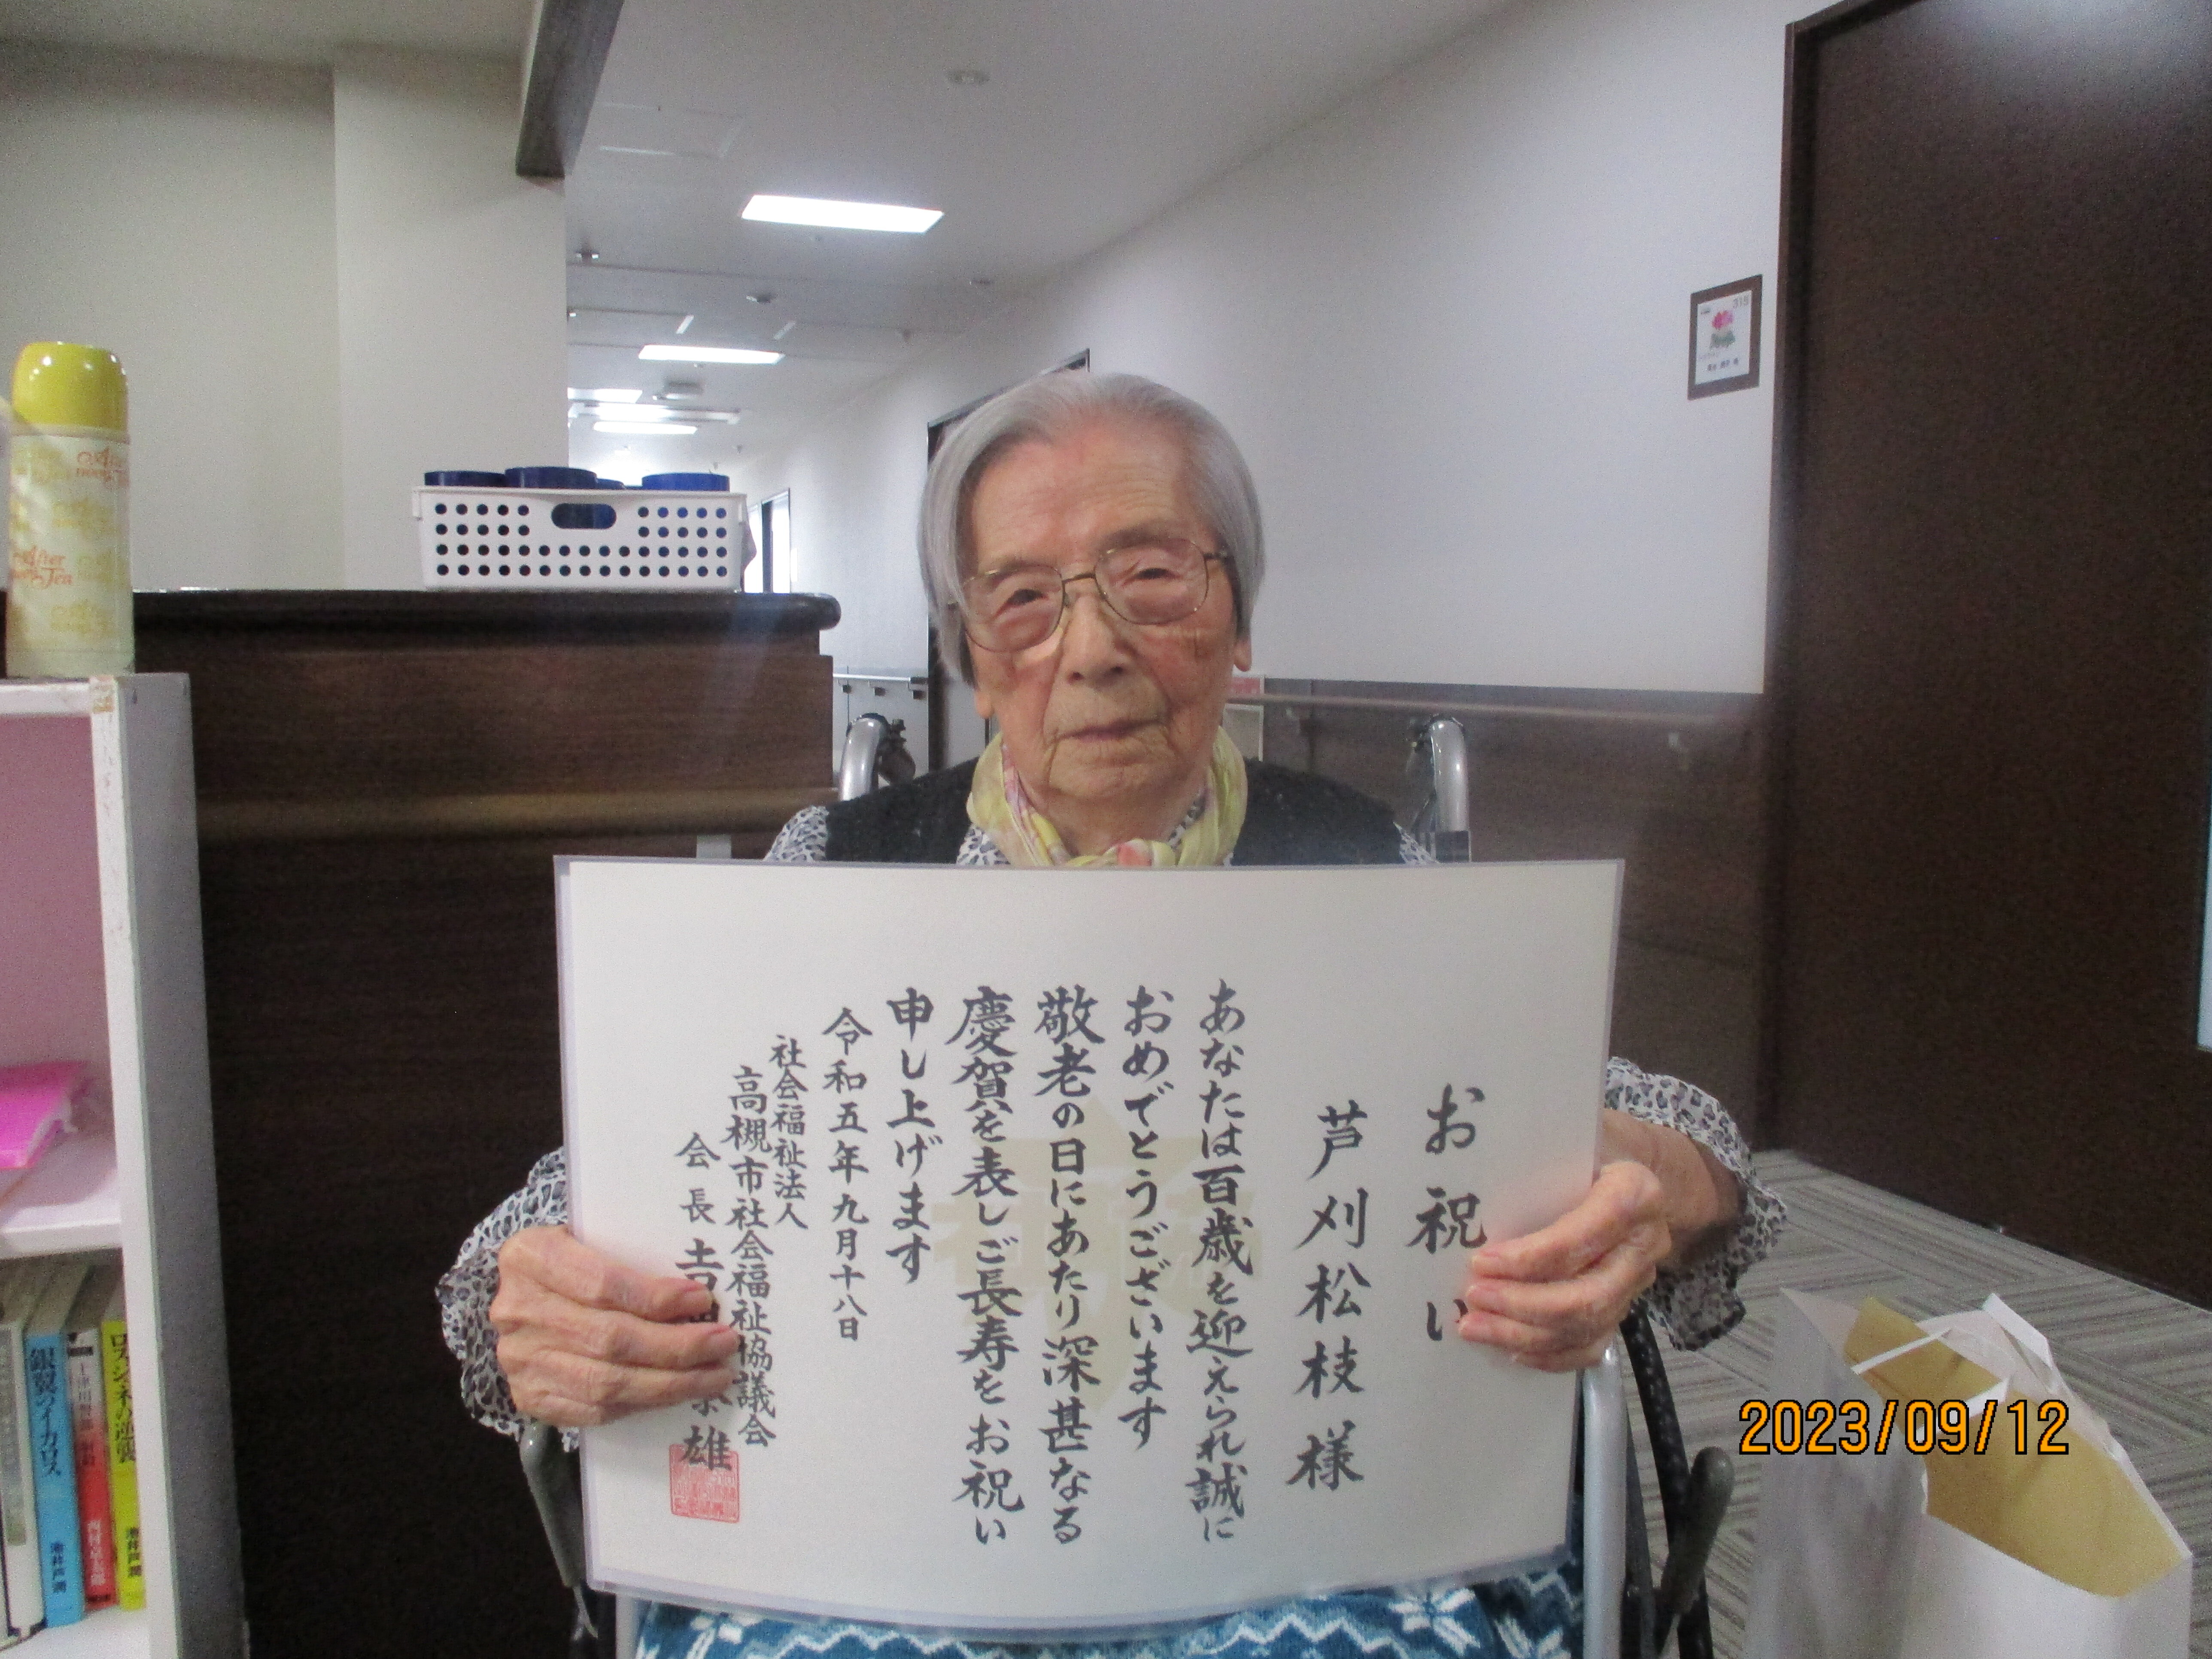 お祝い
芦刈松枝様
あなたは百歳を迎えられ誠に
おめでとうございます
敬老の日にあたり深甚なる
慶賀を表しご長寿をお祝い
申し上げます
令和五年九月十八日
社会福祉法人
高槻市社会福祉協議会
会長
雄
2023/09/12
After
Tea
銀翼のイカロス
池井戸潤
ロスジェネの逆襲
池井戸潤